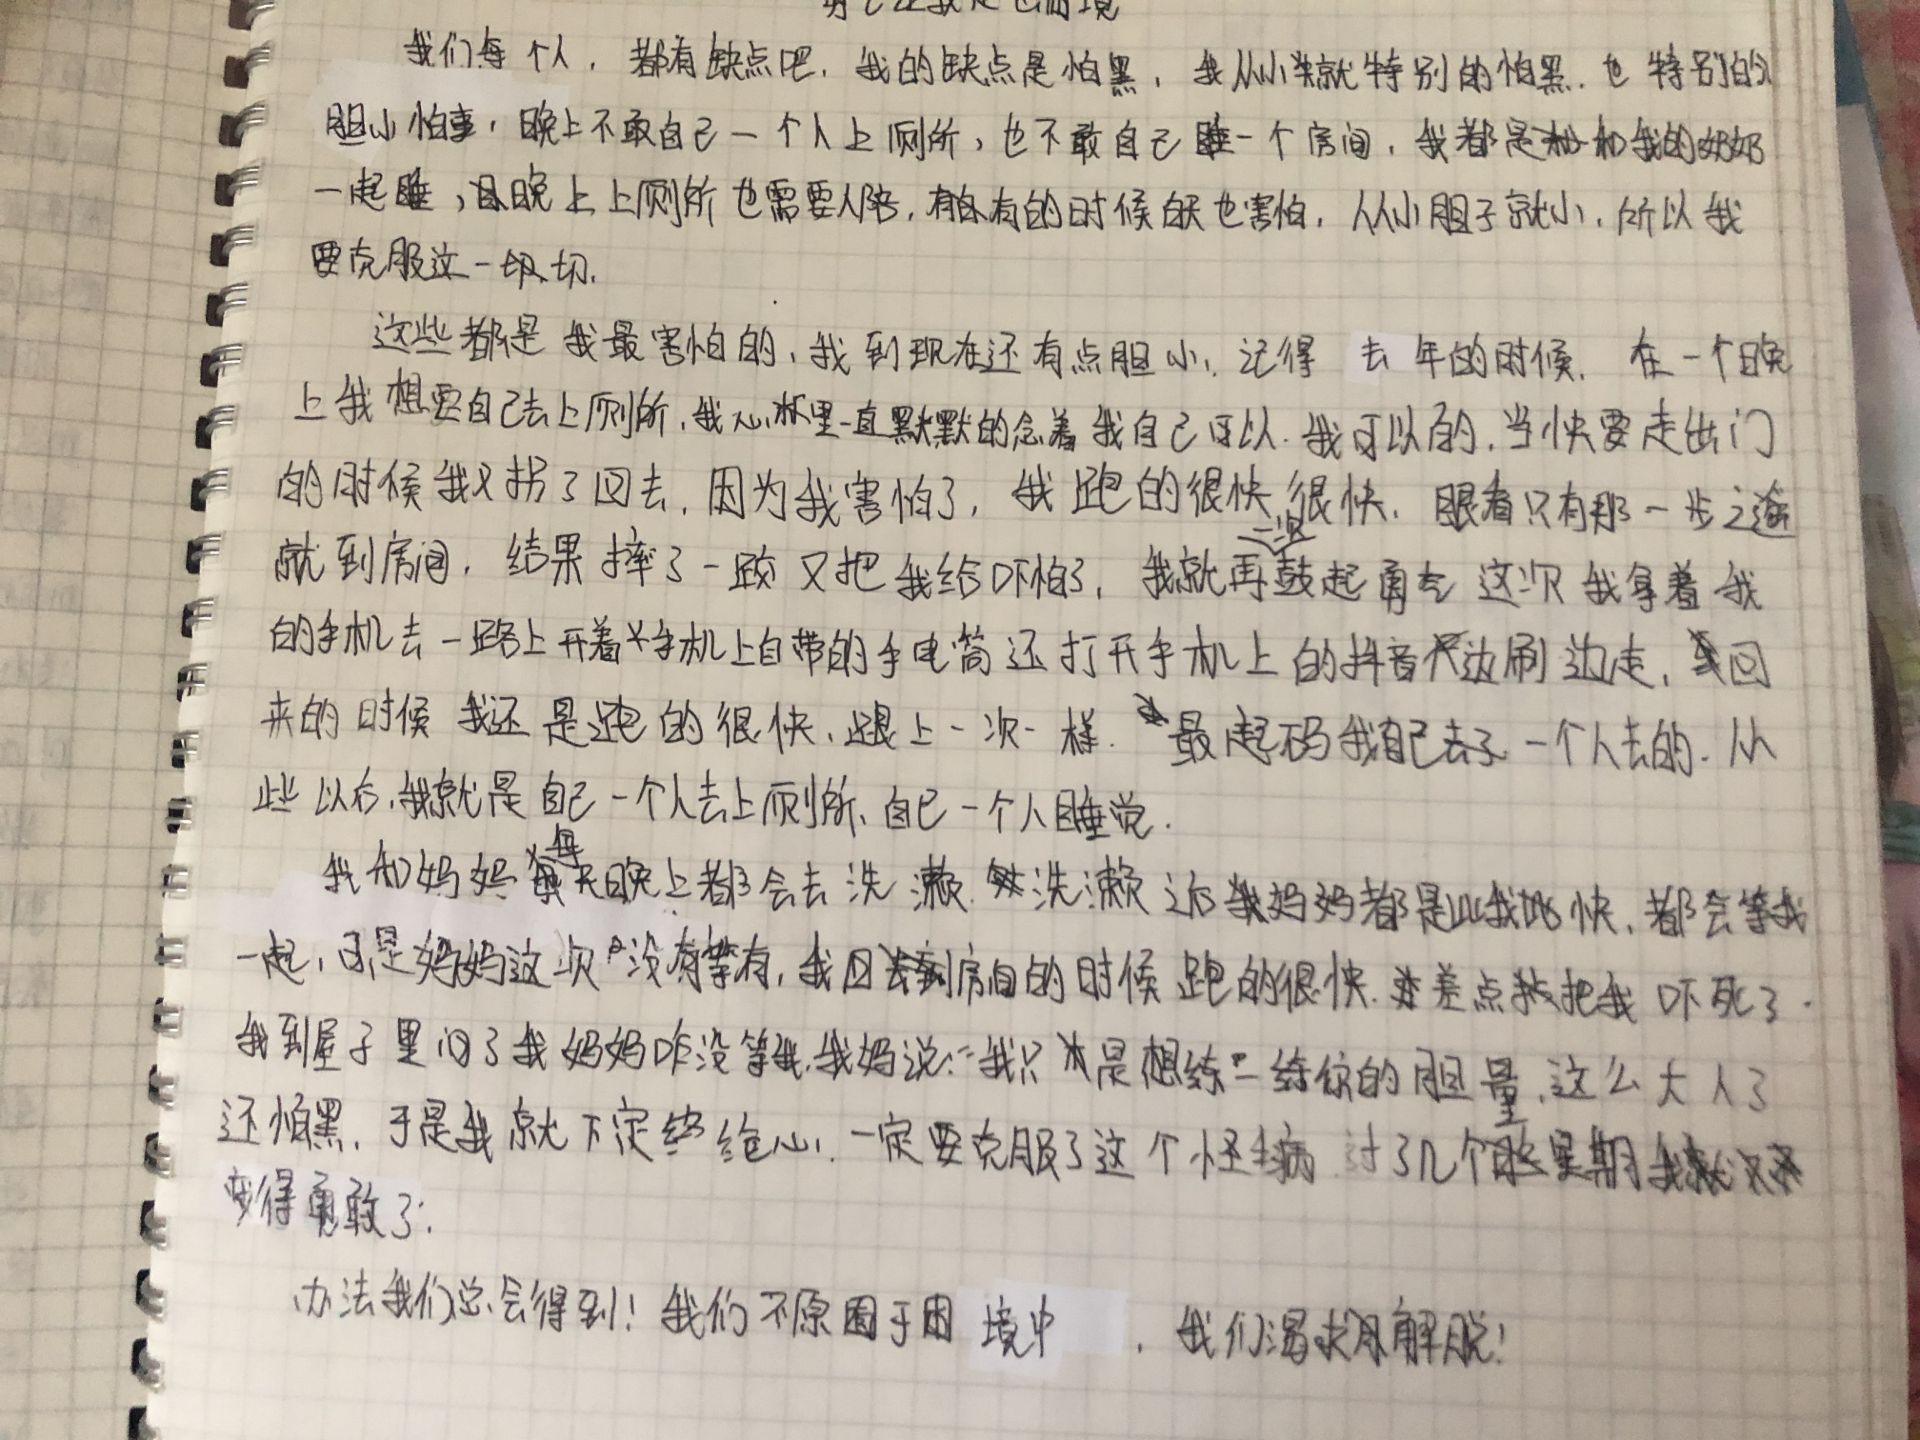 我们每个人，都有缺点吧，我的缺点是怕黑，我从小就特别的怕黑，也特别的
胆小怕事，晚上不敢自己一个人上厕所，也不敢自己睡一个房间，我都是和我的奶奶
一起睡，晚上上厕所也需要人陪，有的时候白天也害怕，从小胆子就小，所以我
要克服这一切。
这些都是我最害怕的，我到现在还有点胆小，记得去年的时候，在一个晚
上我想要自己去上厕所，我心里一直默默的念着我自己可以，我可以的，当快要走出门
的时候我又拐了回去，因为我害怕了，我跑的很快很快，眼看只有那一步之遥
就到房间，结果摔了一跤又把我给吓怕了，我就再一次鼓起勇气这次我拿着我
的手机去一路上开着手机上自带的手电筒还打开手机上的抖音边刷边走，回
来的时候我还是跑的很快，跟上一次一样，最起码我自己去了一个人去的，从
些以后，我就是自己一个人去上厕所，自己一个人睡觉。
我和妈妈每天晚上都会去洗漱，洗漱过后我妈妈都是比我快，都会等我
一起，可是妈妈这次没有等有，我回到房间的时候跑的很快，差点把我吓死了。
我到屋子里问了我妈妈咋没等我，我妈说：“我只是想练一练你的胆量，这么大人了
还怕黑，于是我就下定决心，一定要克服了这个怪病，过了几个星期我就
变得勇敢了。
办法我们总会得到！我们不原困于困境中，我们渴求解脱！